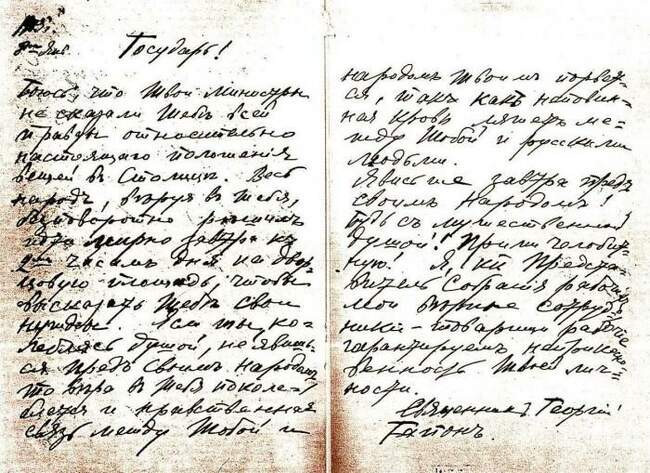 1905.
8го Янв.
Государь!
Боюсь, что Твои министры
не сказали Тебѣ всей
правды относительно
настоящаго положенія
вещей въ Столицѣ. Весь
народъ, вѣруя въ Тебя,
безповоротно рѣшилъ
идти мирно завтра къ
2мъ часамъ дня на двор-
цовую площадь, чтобы
высказать Тебѣ свои
нужды. Если ты, ко-
леблясь душой, не явишь-
ся предъ Своимъ народомъ,
то вѣра въ Тебя поколе-
блется и нравственная
связь между Тобой и
народомъ Твоимъ порвет-
ся, такъ какъ неповин-
ная кровь ляжетъ ме-
жду Тобой и русскими
людьми.
Явись же завтра предъ
своимъ Народомъ!
съ мужественной
душой! Прими челобит-
ную! Я, Предста-
витель Собранія рабочихъ
мои вѣрные сотруд-
ники-товарищи рабочіе
гарантируемъ неприкосно-
венность Твоей лич-
ности.
Священникъ Георгій
Гапонъ.